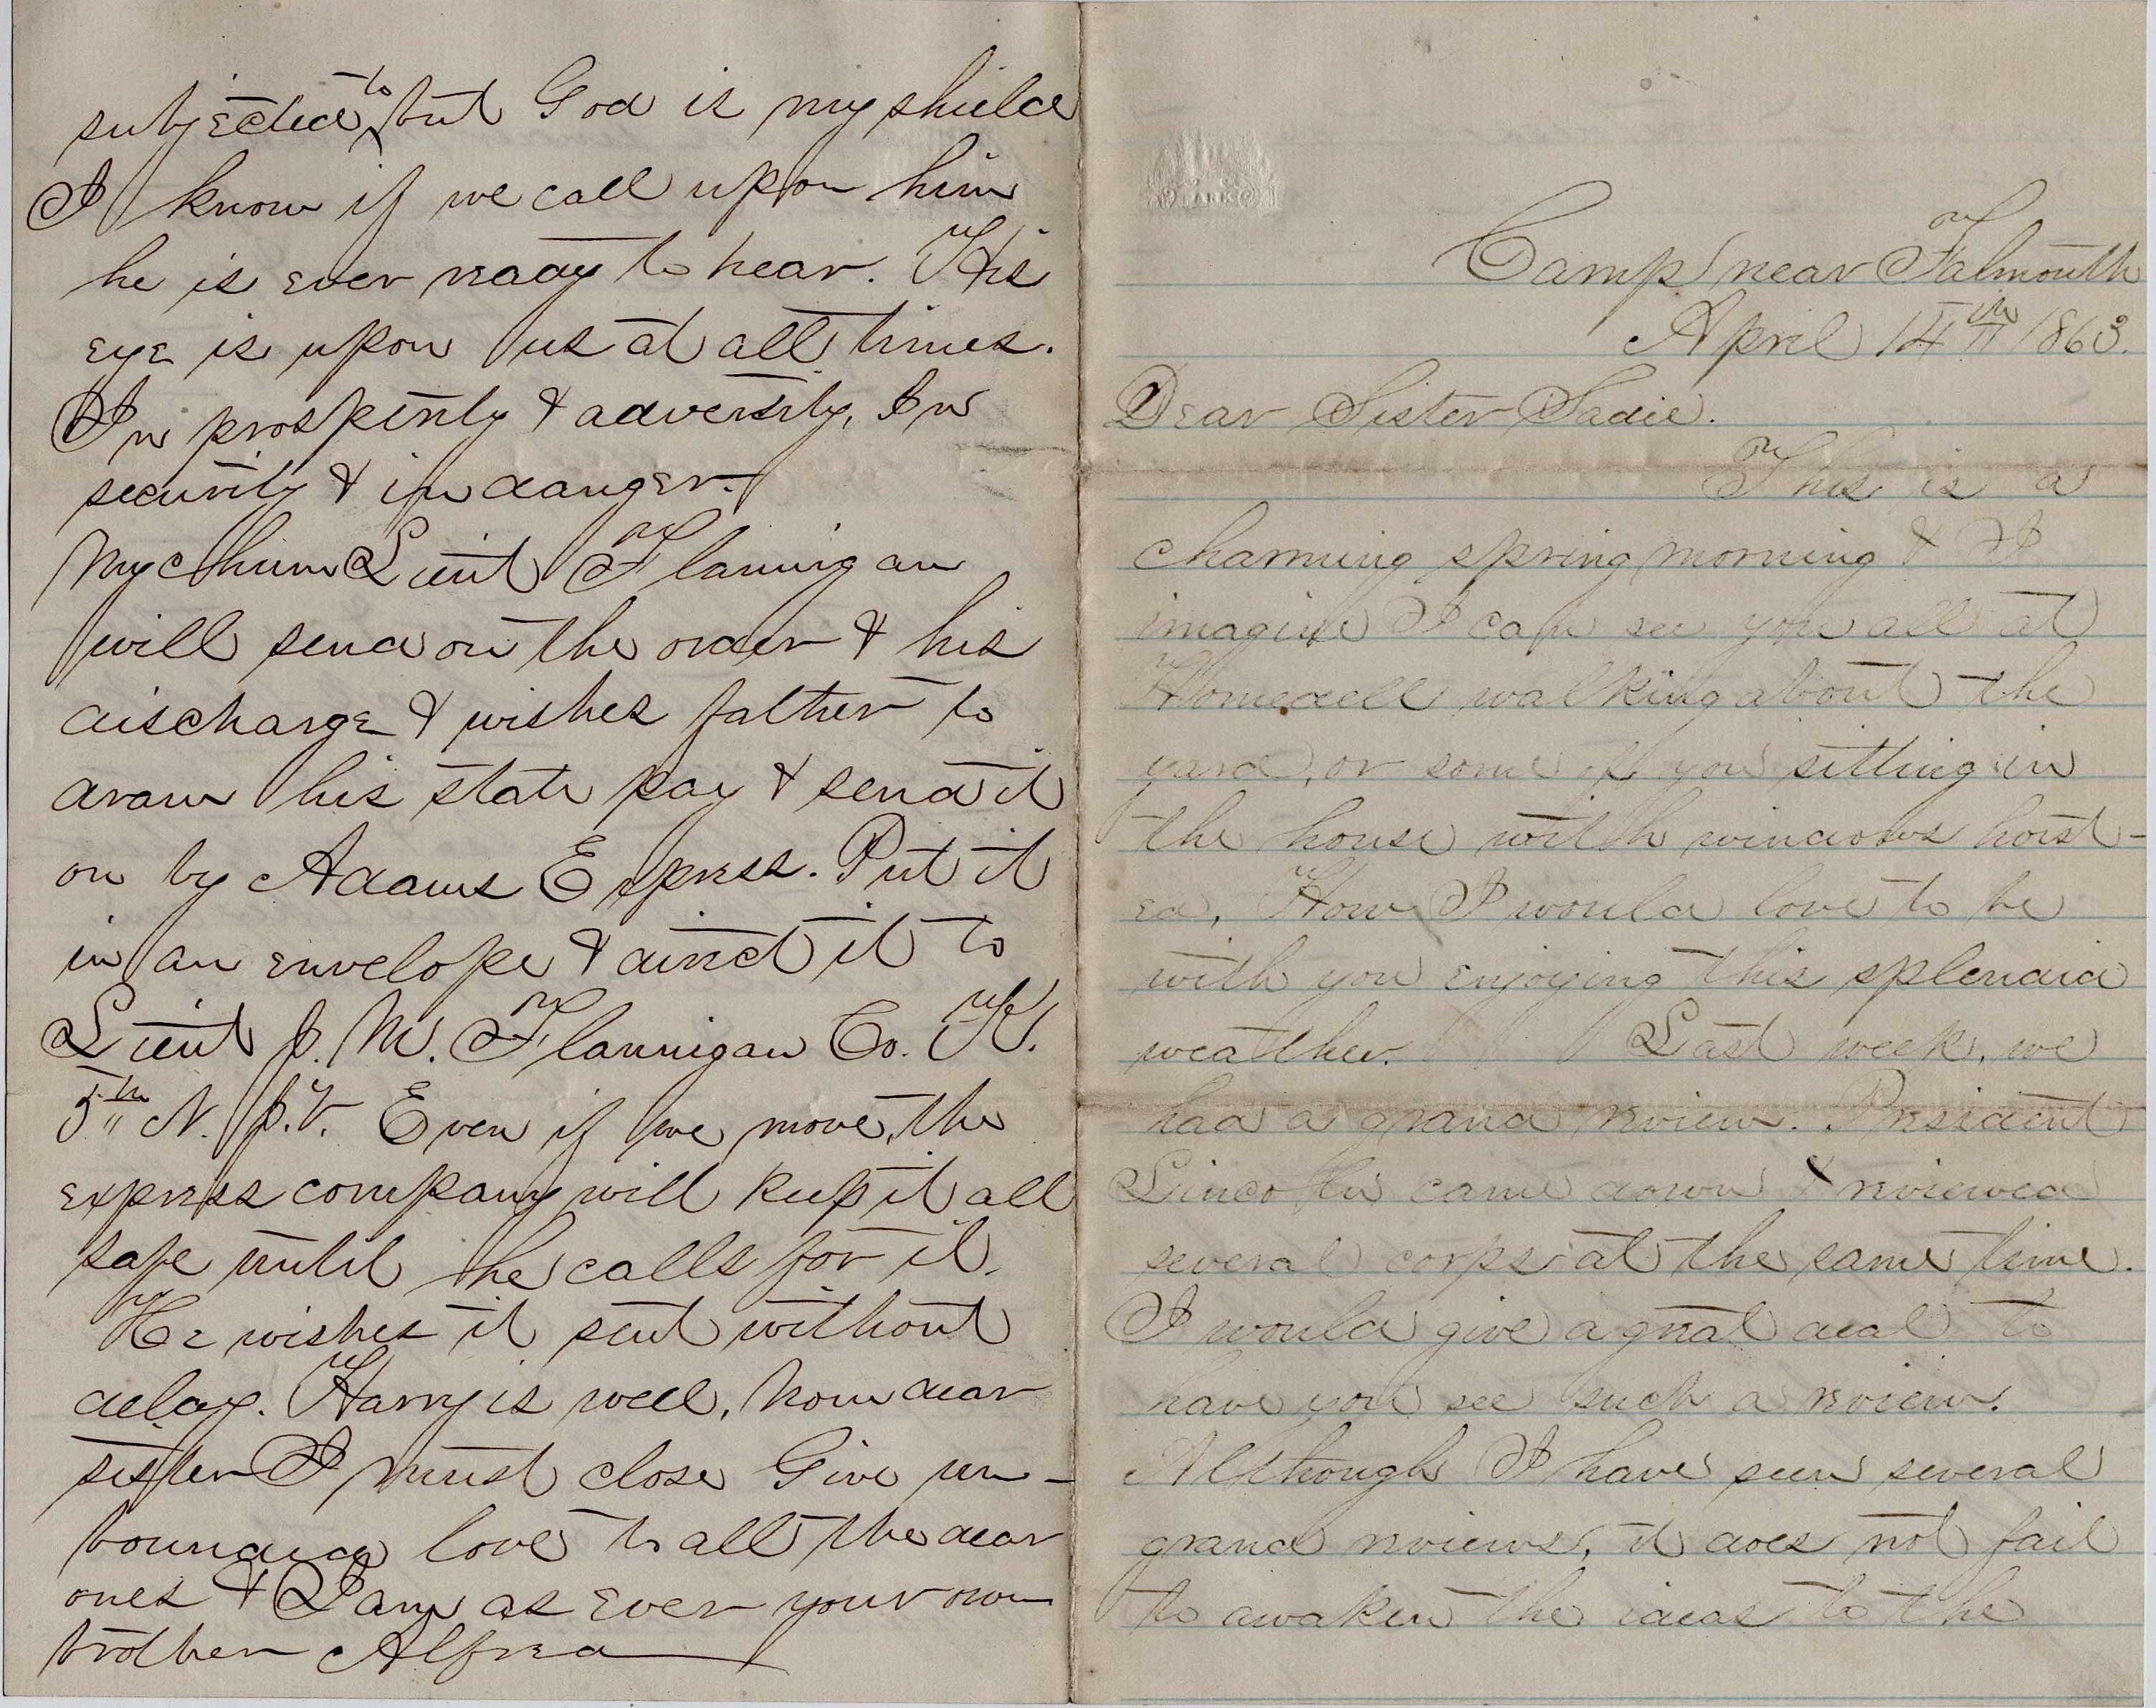 Camp near Falmouth
April 14th 1863.
Dear Sister Sadie.
This is a
charming spring morning & I
imagine I can see you all at
Homedell walking about the
yard, or some of you sitting in
the house with windows hoist-
ed. How I would love to be
with you enjoying this splendid
weather. Last week, we
had a grand review. President
Lincoln came down & reviewed
several corps at the same time.
I would give a great deal to
have you see such a review.
Although I have seen several
grand reviews, it does not fail
to awaken the ideas to the
subjected to, but God is my shield
I know if we call upon him
he is ever ready to hear. His
eye is upon us at all times.
In prosperity & adversity, In
security & in danger.
My chum Lieut Flannigan
will send on the order & his
discharge & wishes father to
draw his state pay & send it
on by Adams Express. Put it
in an envelope & direct it to
Lieut J. M. Flannigan Co. K.
5th N. J. V. Even if we move, the
express company will keep it all
safe until he calls for it.
He wishes it sent without
delay. Harry is well, Now dear
sister I must close Give un-
bounded love to all the dear
ones & I am as ever your own
brother Alfred